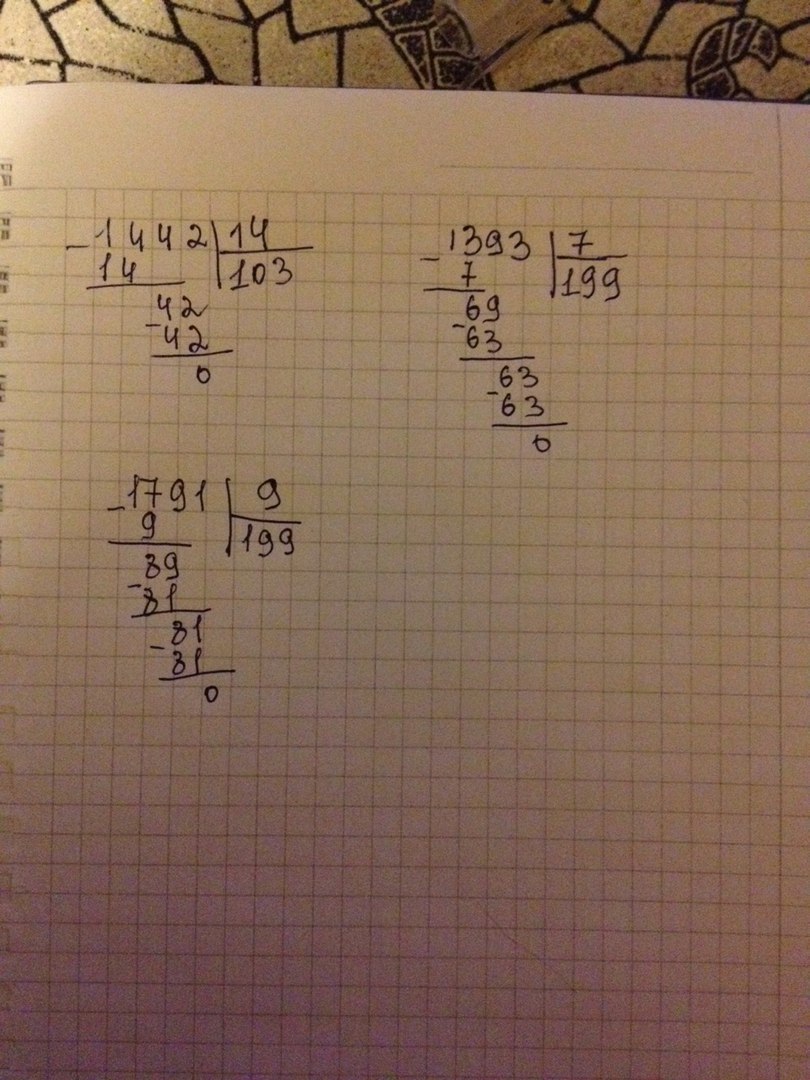 -1442|14
14 |103
42
-42
0
-1393|7
7 |199
69
-63
63
-63
0
-1791|9
9 |199
89
-81
81
-81
0